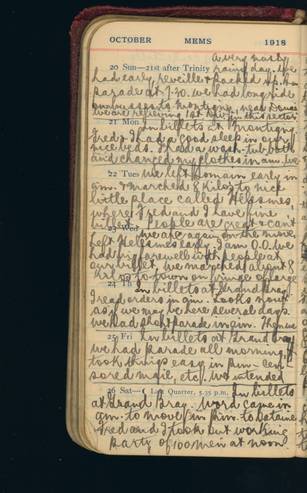 OCTOBER MEMS 1918
a very nasty
20 Sun—21st after Trinity rainy day. We
had early reveille & packed up. In
parade at 7.30. We had long ride
on busses to Montigny, near Douai
we are relieving 1st Div in this sector
21 Mon In billets at Montigny
Fred & I had a good sleep in our
nice beds. I had a wash-tub bath
and changed my clothes in am.
22 Tue We left Romain early in
am. & marched 8 Kilos to nice
little place called Helesmes
where Fred and I have fine
billet. People are great
23 Wed We are again on the move
left Helesmes early. I am O.O. We
had big farewell with people at
our billet, we marched about
to town on fringe of
24 Th In billets at Grand Bray
I read orders in am. Looks now
as if we may be here several days
we had short parade in am. Then
25 Fri In billets at Grand Bray
we had parade all morning. I
took things easy in pm - cen
sored mail, etc. We intended
26 Sat—( Last Quarter, 5.35 p.m. In billets
at Grand Bray. Word came in
am. to move in pm. to
Fred and I took out working
party of 100 men at noon